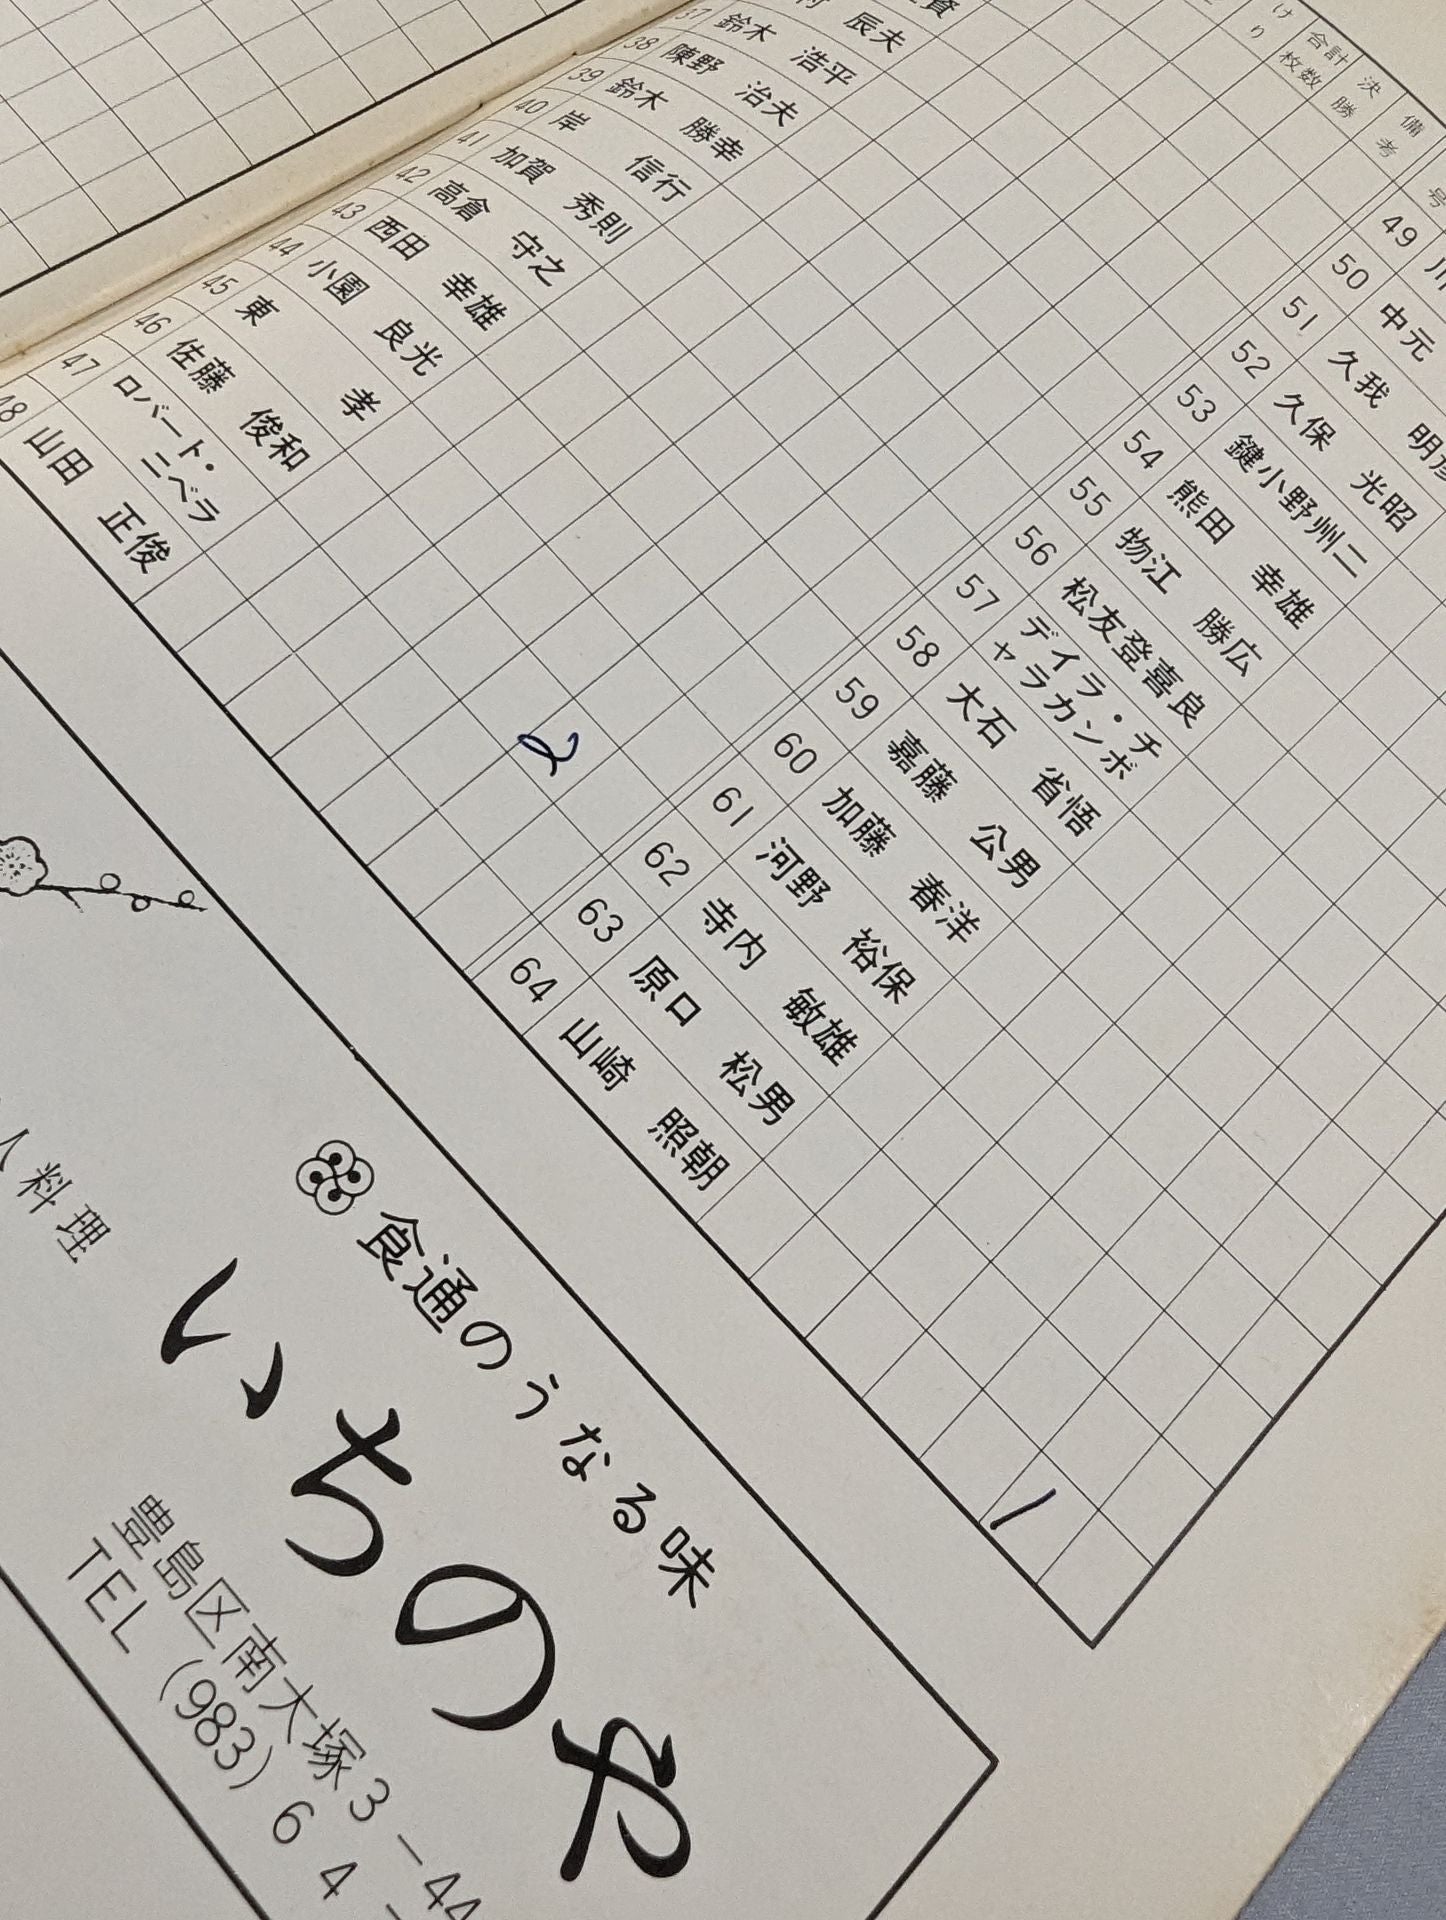 けり
合計枚数
決勝
備考
号
辰夫
37 鈴木 浩平
38 陳野 治夫
39 鈴木 勝幸
40 岸 信行
41 加賀 秀則
42 高倉 守之
43 西田 幸雄
44 小園 良光
45 東 孝
46 佐藤 俊和
47 ロバート・ニベラ
48 山田 正俊
2
49 川
50 中元
51 久我 明彦
52 久保 光昭
53 鍵小野州二
54 熊田 幸雄
55 物江 勝広
56 松友登喜良
57 デイラ・チャラカンボ
58 大石 省悟
59 嘉藤 公男
60 加藤 春洋
61 河野 裕保
62 寺内 敏雄
63 原口 松男
64 山崎 照朝
1
料理
食通のうなる味
いちのや
豊島区南大塚3-44
TEL (983) 64